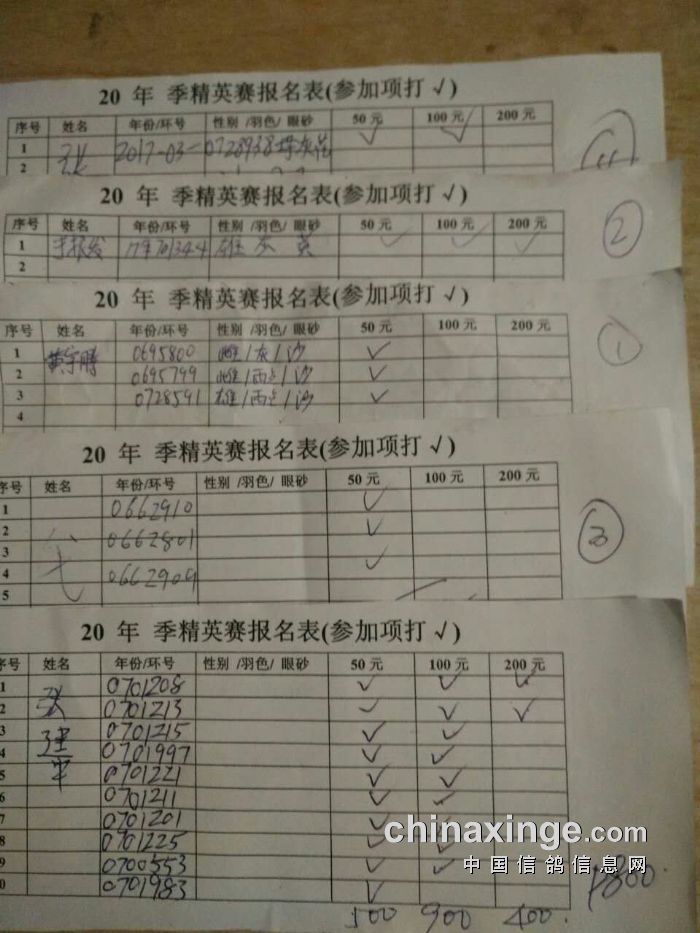 20 年 季精英赛报名表(参加项打 √)
序号 姓名 年份/环号 性别 /羽色/ 眼砂 50 元 100 元 200 元
1 张 2017-03-0728938 √ √
2
20 年 季精英赛报名表(参加项打 √)
序号 姓名 年份/环号 性别 /羽色/ 眼砂 50 元 100 元 200 元 ②
1 √ √ √
2
20 年 季精英赛报名表(参加项打 √)
序号 姓名 年份/环号 性别 /羽色/ 眼砂 50 元 100 元 200 元 ①
1 黄宇腾 0695800 雌/灰/沙 √
2 0695799 雌/雨点/沙 √
3 0728591 雄/雨点/沙 √
4
20 年 季精英赛报名表(参加项打 √)
序号 姓名 年份/环号 性别 /羽色/ 眼砂 50 元 100 元 200 元
1 0662910 √
2 0662801 √
3
4 0662909 √
5
20 年 季精英赛报名表(参加项打 √)
序号 姓名 年份/环号 性别 /羽色/ 眼砂 50 元 100 元 200 元
1 张建军 0701208 √ √ √
2 0701213 √ √ √
3 0701215 √ √
4 0701997 √ √
5 0701221 √ √
6 0701211 √ √
7 0701201 √
8 0701225 √ √
9 0700553 √ √
0 0701983 √
500 900 400.
1800.
chinaxinge.com
中国信鸽信息网